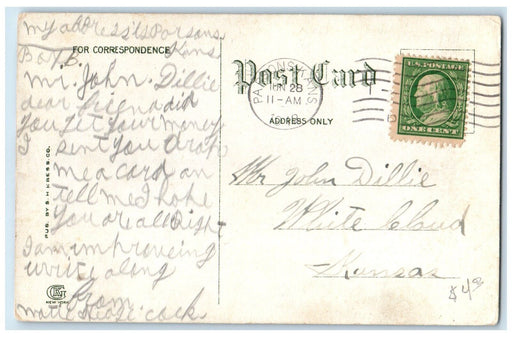 my address is Parsons
Kans
Box 7B.
FOR CORRESPONDENCE
mr. John. Dillie
dear friend did
you get your money
I sent you drop
me a card an
tell me I hope
you are all right
I am improveing
write along
From
cock
PUB. BY S. H. KRESS & CO.
NEW YORK
Post Card
PARSONS KANS
JUN 28
11-AM
ADDRESS ONLY
U.S. POSTAGE
ONE CENT
Mr John Dillie
White Cloud
Kansas